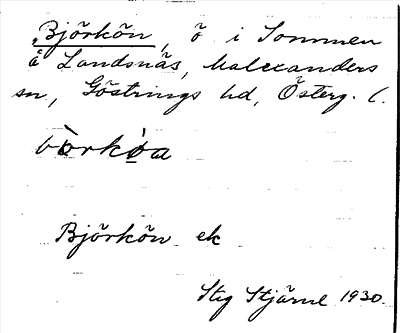 Björkön, ö i Sommen
å Landsnäs, Malexanders
sn, Göstrings hd, Österg. l.
Björkön ek
Stig Stjärne 1930.